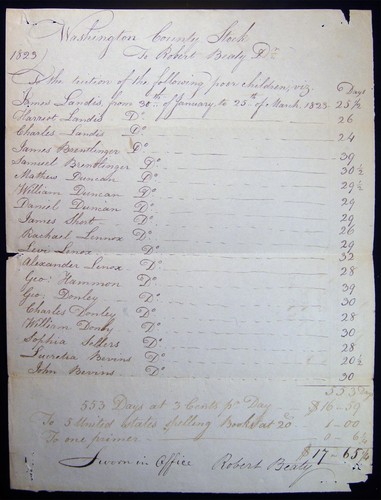 Washington County Stock
1823 To Robert Beaty Dr
To the tuition of the following poor children, viz. Days
James Landes from 30th of January to 25th of March 1823. 25½
Harriot Landes Do 26
Charles Landis Do 24
James Brentlinger Do 39
Samuel Brentlinger Do 30½
Mathew Duncan Do 29½
William Duncan Do 29
Daniel Duncan Do 29
James Short Do 26
Rachael Lennox Do 29
Levi Lenox Do 32
Alexander Lenox Do 28
Geo: Hammon Do 39
Geo: Donley Do 30
Charles Donley Do 28
William Donley Do 30
Sophia Sellers Do 28
Lucretia Bevins Do 20½
John Bevins Do 30
553 Days
553 Days at 3 Cents pr Day $16-59
To 5 United States Spelling Books at 20 1-00
To one primer 0-6¼
$17-65¼
Sworn in Office Robert Beaty